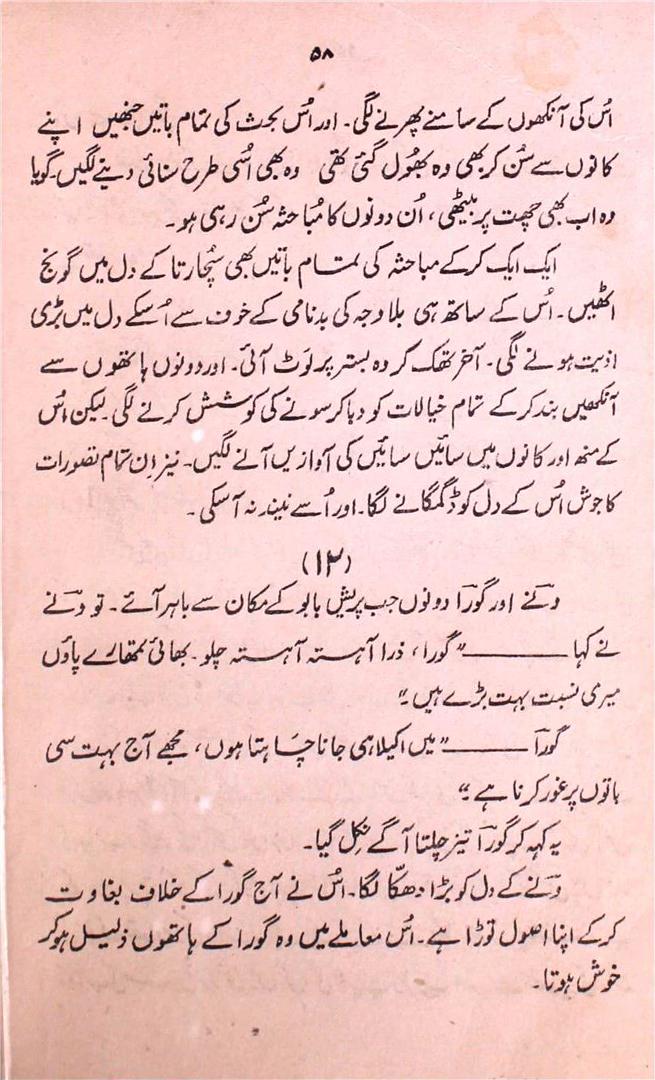 ۵۸
اُس کی آنکھوں کے سامنے پھرنے لگی۔ اور اُس بحث کی تمام باتیں جنھیں اپنے
کانوں سے سُن کر بھی وہ بھُول گئی تھی وہ بھی اُسی طرح سنائی دینے لگیں۔ گویا
وہ اب بھی چھت پر بیٹھی، اُن دونوں کا مُباحثہ سُن رہی ہو۔
ایک ایک کر کے مباحثہ کی تمام باتیں بھی سُچارتا کے دل میں گونج
اٹھیں۔ اُس کے ساتھ ہی بلا وجہ کی بدنامی کے خوف سے اُسکے دل میں بڑی
اذیت ہونے لگی۔ آخر تھک کر وہ بستر پر لَوٹ آئی۔ اور دونوں ہاتھوں سے
آنکھیں بند کر کے تمام خیالات کو دبا کر سونے کی کوشش کرنے لگی۔ لیکن اُس
کے منھ اور کانوں میں سائیں سائیں کی آوازیں آنے لگیں۔ نیز اِن تمام تصورات
کا جوش اُس کے دل کو ڈگمگانے لگا۔ اور اُسے نیند نہ آسکی۔
(۱۲)
ونے اور گورا دونوں جب پریش بابو کے مکان سے باہر آئے۔ تو ونے
نے کہا ——— "گورا، ذرا آہستہ آہستہ چلو۔ بھائی تمھارے پاؤں
میری نسبت بہت بڑے ہیں۔"
گورا ——— "میں اکیلا ہی جانا چاہتا ہوں، مجھے آج بہت سی
باتوں پر غور کرنا ہے۔"
یہ کہہ کر گورا تیز چلتا آگے نِکل گیا۔
ونے کے دل کو بڑا دھکّا لگا۔ اُس نے آج گورا کے خلاف بغاوت
کر کے اپنا اصول توڑا ہے۔ اُس معاملے میں وہ گورا کے ہاتھوں ذلیل ہو کر
خوش ہوتا۔